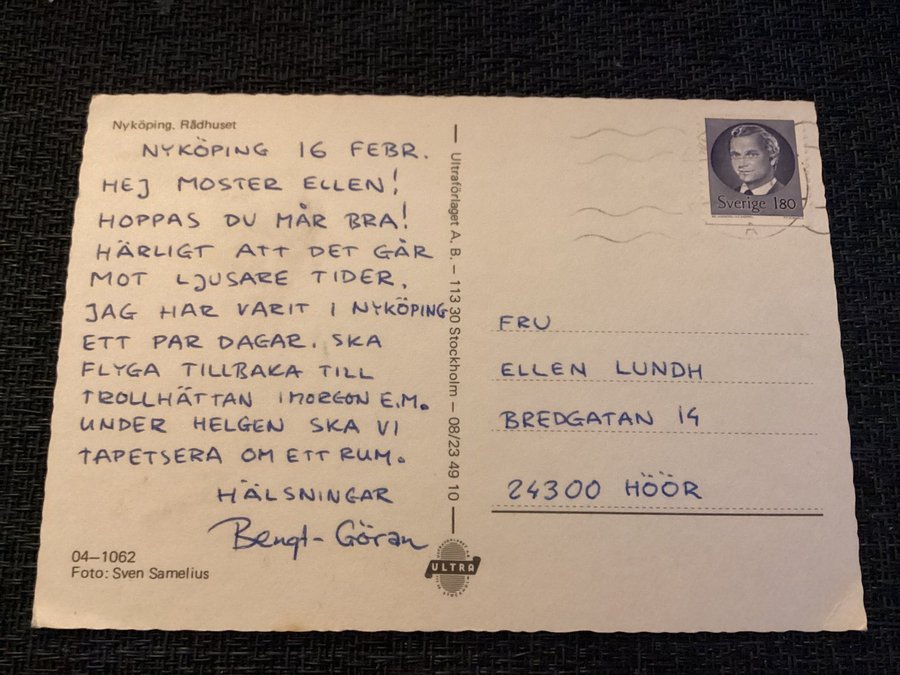 Nyköping. Rådhuset
NYKÖPING 16 FEBR.
HEJ MOSTER ELLEN!
HOPPAS DU MÅR BRA!
HÄRLIGT ATT DET GÅR
MOT LJUSARE TIDER.
JAG HAR VARIT I NYKÖPING
ETT PAR DAGAR. SKA
FLYGA TILLBAKA TILL
TROLLHÄTTAN IMORGON E.M.
UNDER HELGEN SKA VI
TAPETSERA OM ETT RUM.
HÄLSNINGAR
Bengt-Göran
04–1062
Foto: Sven Samelius
Ultraförlaget A. B. – 113 30 Stockholm – 08/23 49 10
ULTRA
Sverige 180
FRU
ELLEN LUNDH
BREDGATAN 14
24300 HÖÖR